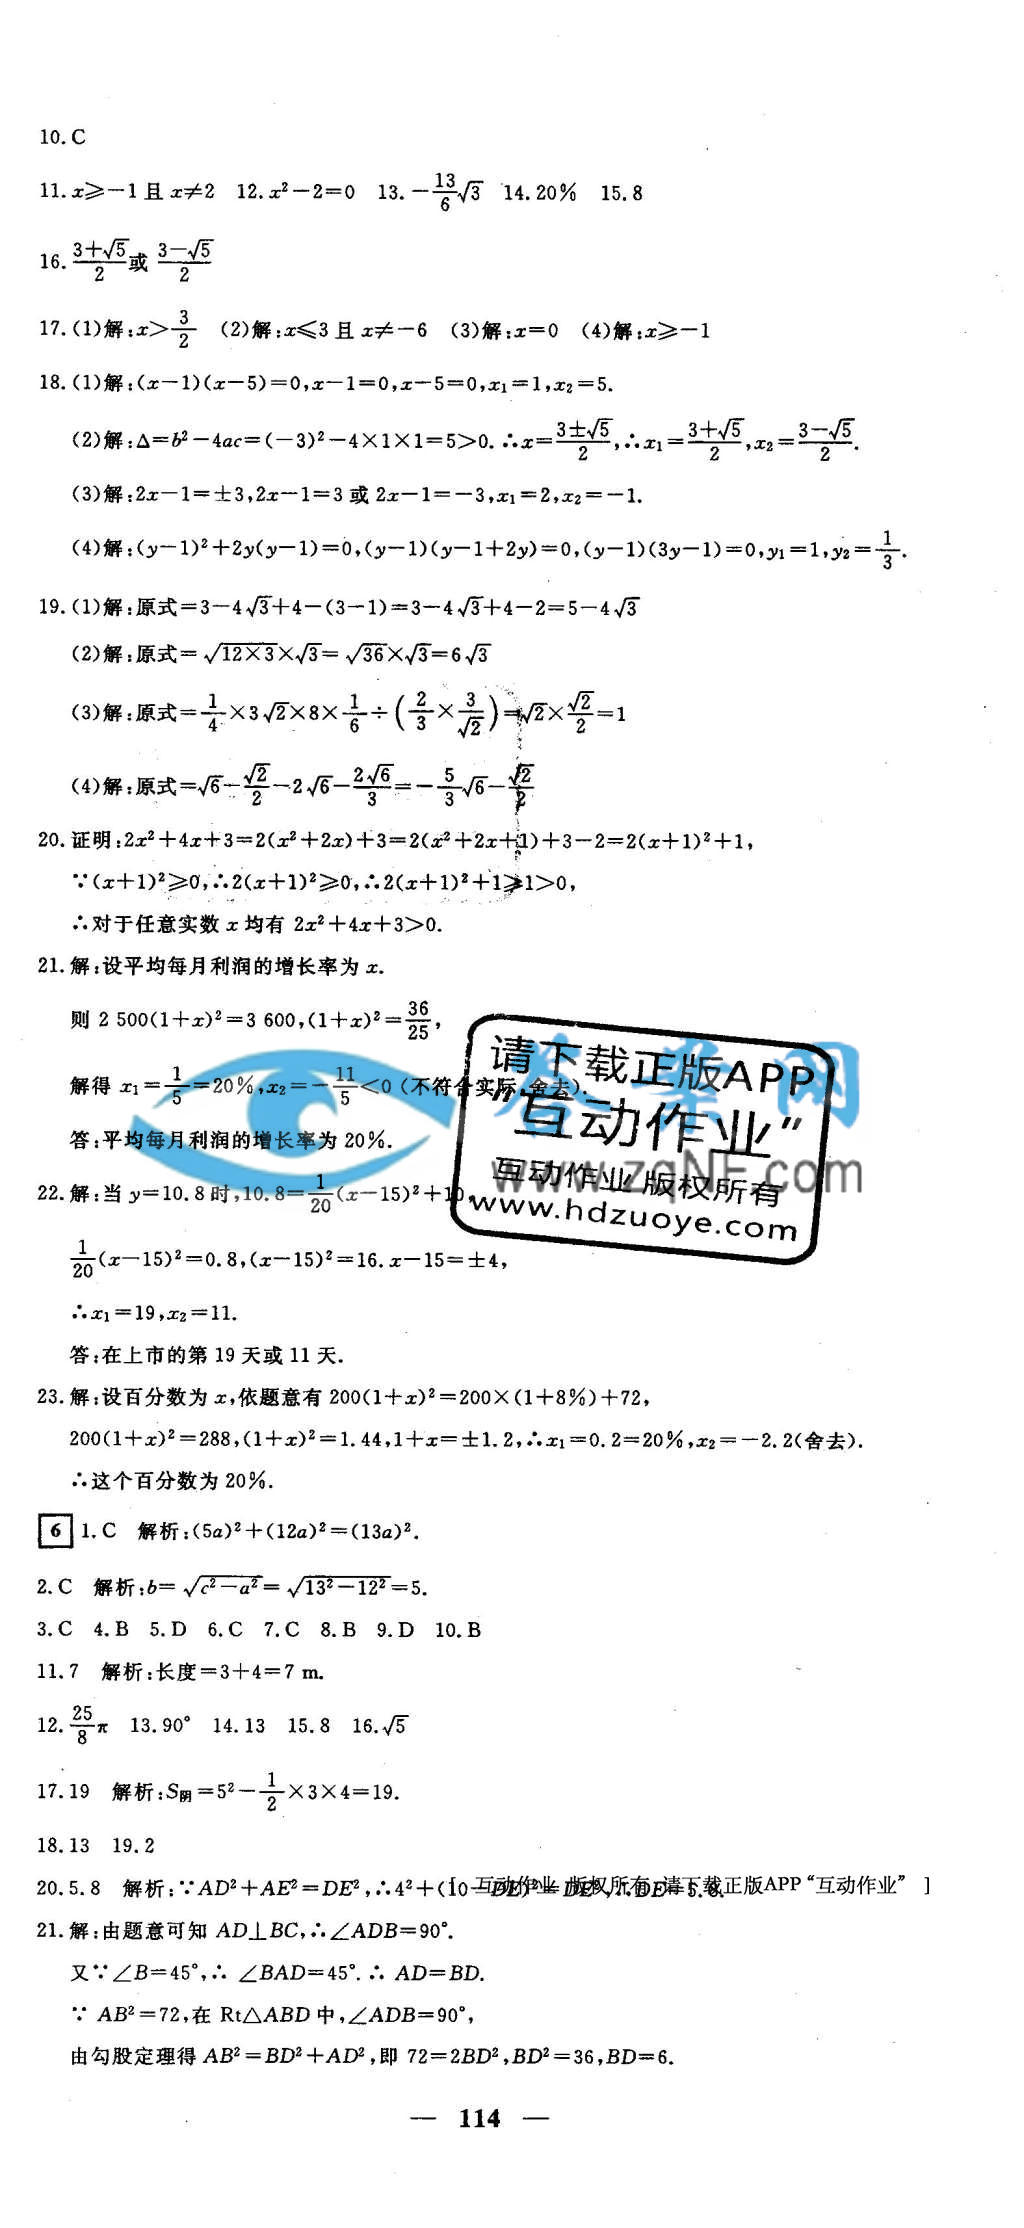 10. C
11. x≥-1 且 x≠2 12. x²-2=0 13. -13/6√3 14. 20% 15. 8
16. (3+√5)/2 或 (3-√5)/2
17. (1)解:x>3/2 (2)解:x≤3 且 x≠-6 (3)解:x=0 (4)解:x≥-1
18. (1)解:(x-1)(x-5)=0,x-1=0,x-5=0,x₁=1,x₂=5.
(2)解:Δ=b²-4ac=(-3)²-4×1×1=5>0.∴x=(3±√5)/2,∴x₁=(3+√5)/2,x₂=(3-√5)/2.
(3)解:2x-1=±3,2x-1=3 或 2x-1=-3,x₁=2,x₂=-1.
(4)解:(y-1)²+2y(y-1)=0,(y-1)(y-1+2y)=0,(y-1)(3y-1)=0,y₁=1,y₂=1/3.
19. (1)解:原式=3-4√3+4-(3-1)=3-4√3+4-2=5-4√3
(2)解:原式=√(12×3)×√3=√36×√3=6√3
(3)解:原式=1/4×3√2×8×1/6÷(2/3×3/√2)=√2×√2/2=1
(4)解:原式=√6-√2/2-2√6-2√6/3=-5/3√6-√2/2
20. 证明:2x²+4x+3=2(x²+2x)+3=2(x²+2x+1)+3-2=2(x+1)²+1,
∵(x+1)²≥0,∴2(x+1)²≥0,∴2(x+1)²+1≥1>0,
∴对于任意实数 x 均有 2x²+4x+3>0.
21. 解:设平均每月利润的增长率为 x.
则 2 500(1+x)²=3 600,(1+x)²=36/25,
解得 x₁=1/5=20%,x₂=-11/5<0(不符合实际,舍去).
答:平均每月利润的增长率为 20%.
22. 解:当 y=10.8 时,10.8=1/20(x-15)²+10,
1/20(x-15)²=0.8,(x-15)²=16.x-15=±4,
∴x₁=19,x₂=11.
答:在上市的第 19 天或 11 天.
答案网
www.zqNF.com
请下载正版APP
“互动作业”
互动作业 版权所有
www.hdzuoye.com
23. 解:设百分数为 x,依题意有 200(1+x)²=200×(1+8%)+72,
200(1+x)²=288,(1+x)²=1.44,1+x=±1.2,∴x₁=0.2=20%,x₂=-2.2(舍去).
∴这个百分数为 20%.
6 1. C 解析:(5a)²+(12a)²=(13a)².
2. C 解析:b=√(c²-a²)=√(13²-12²)=5.
3. C 4. B 5. D 6. C 7. C 8. B 9. D 10. B
11. 7 解析:长度=3+4=7 m.
12. 25/8π 13. 90° 14. 13 15. 8 16. √5
17. 19 解析:S阴=5²-1/2×3×4=19.
18. 13 19. 2
20. 5.8 解析:∵AD²+AE²=DE²,∴4²+(10-DE)²=DE²,∴DE=5.8.
[ 互动作业 版权所有 请下载正版APP“互动作业” ]
21. 解:由题意可知 AD⊥BC,∴∠ADB=90°.
又∵∠B=45°,∴ ∠BAD=45°.∴ AD=BD.
∵ AB²=72,在 Rt△ABD 中,∠ADB=90°,
由勾股定理得 AB²=BD²+AD²,即 72=2BD²,BD²=36,BD=6.
— 114 —